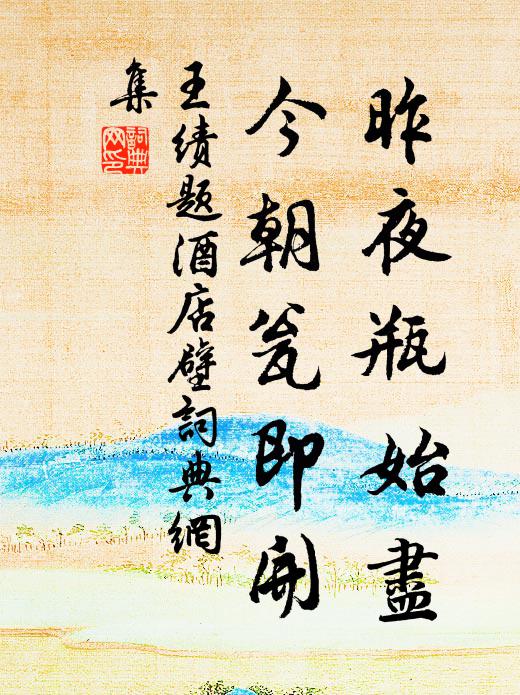 昨夜瓶始盡
今朝瓮即開
王績題酒店壁詞典網
集
詞典
网印